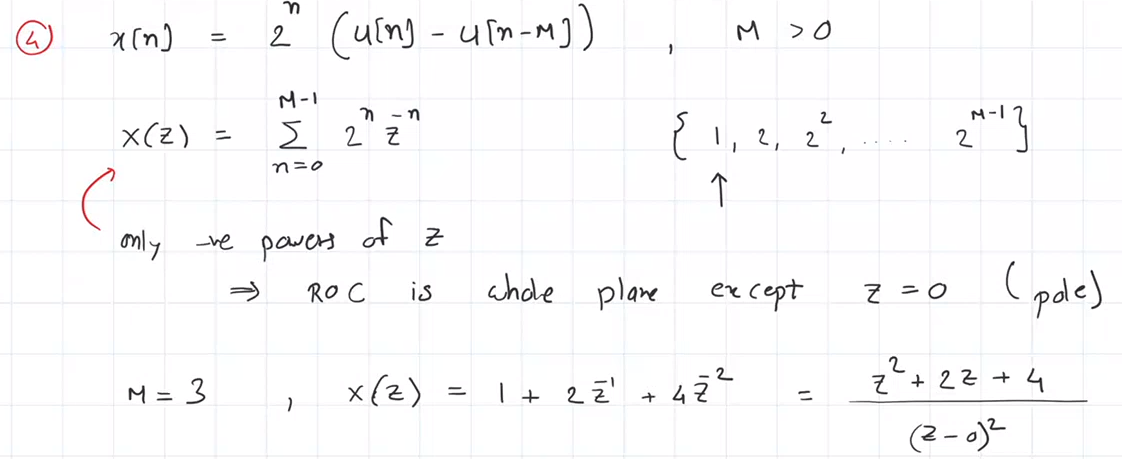 ④ x[n] = 2^n (u[n] - u[n-M]) , M > 0
X(z) = \sum_{n=0}^{M-1} 2^n z^{-n} { 1, 2, 2^2, .... 2^{M-1} }
↑
only -ve powers of z
⇒ ROC is whole plane except z = 0 (pole)
M = 3 , X(z) = 1 + 2z^{-1} + 4z^{-2} = \frac{z^2 + 2z + 4}{(z-0)^2}